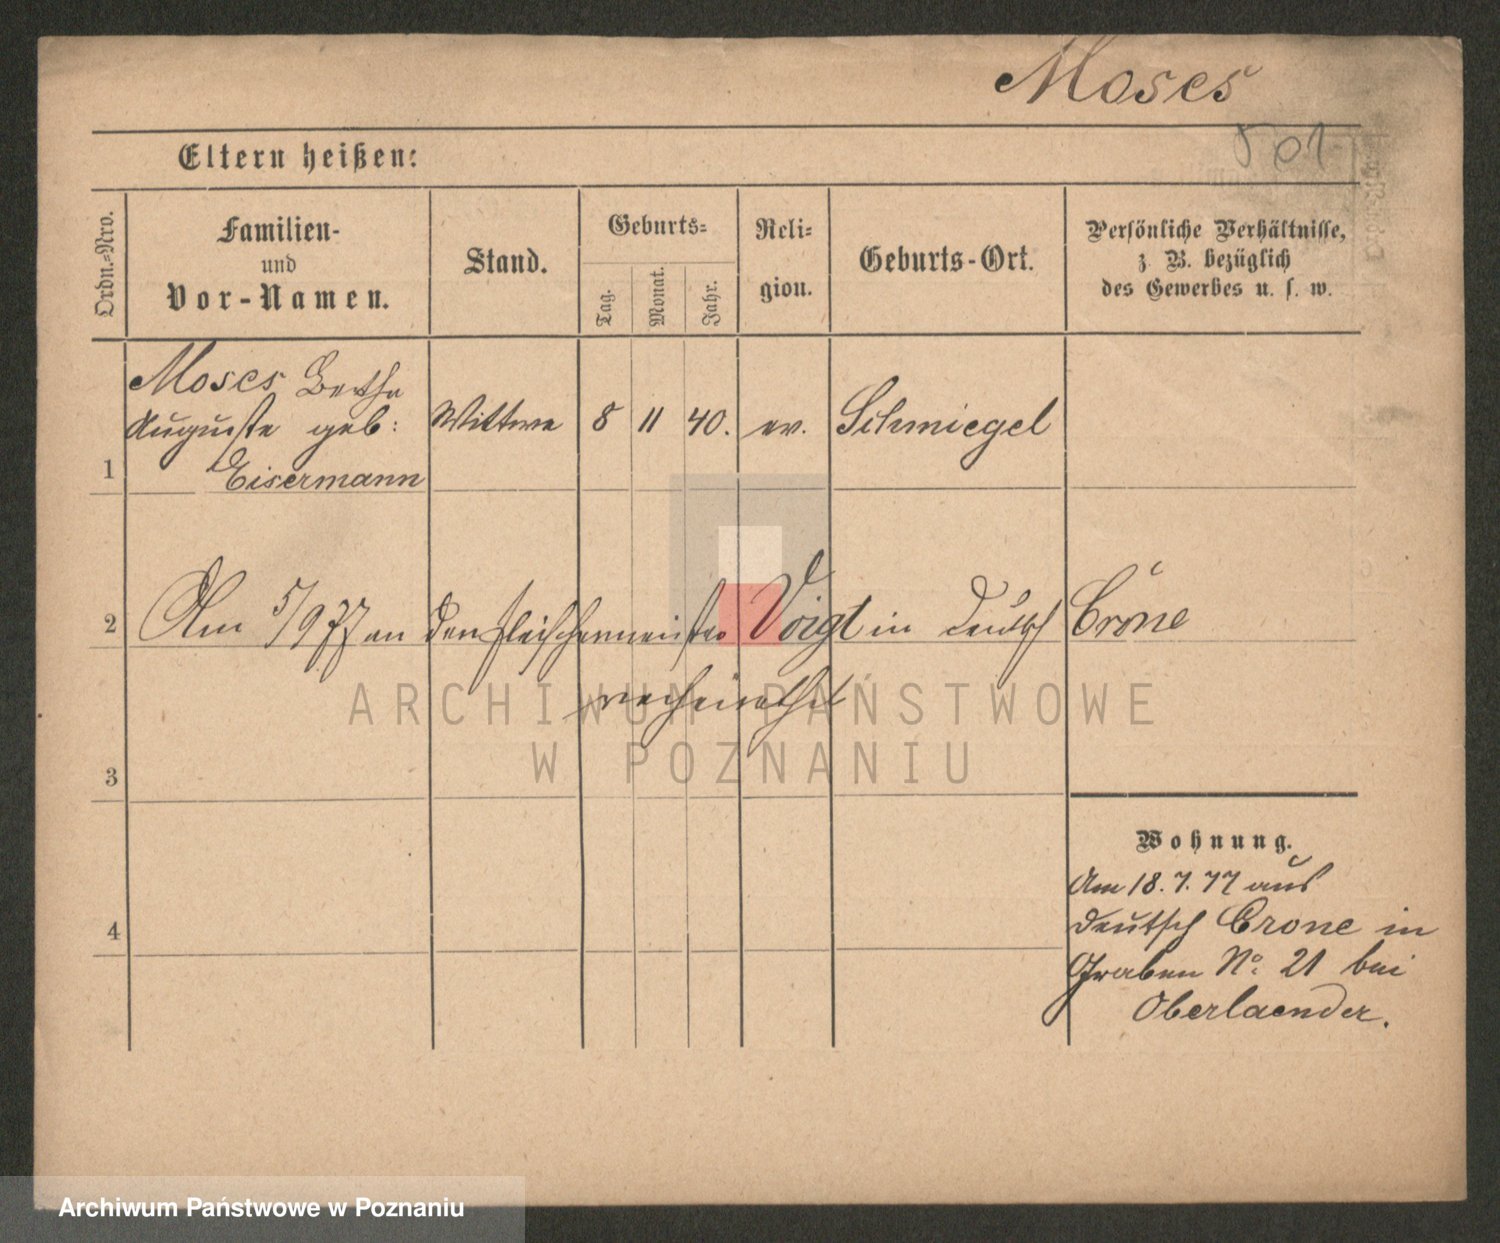 Moses
501
Eltern heißen:
Ordn.-Nro.
Familien-
und
Vor-Namen.
Stand.
Geburts-
Tag.
Monat.
Jahr.
Reli-
gion.
Geburts-Ort.
Persönliche Verhältnisse,
z. B. bezüglich
des Gewerbes u. s. w.
Moses Bertha
Auguste geb:
1 Eisermann
Wittwe 8 11 40. ev. Schmiegel
2 Am 5/9 77 an den Fleischermeister Voigt in Deutsch Crone
verheirathet
ARCHIWUM PAŃSTWOWE
W POZNANIU
3
4
Wohnung.
Am 18. 7. 77 aus
Deutsch Crone in
Graben No. 21 bei
Oberlaender.
Archiwum Państwowe w Poznaniu